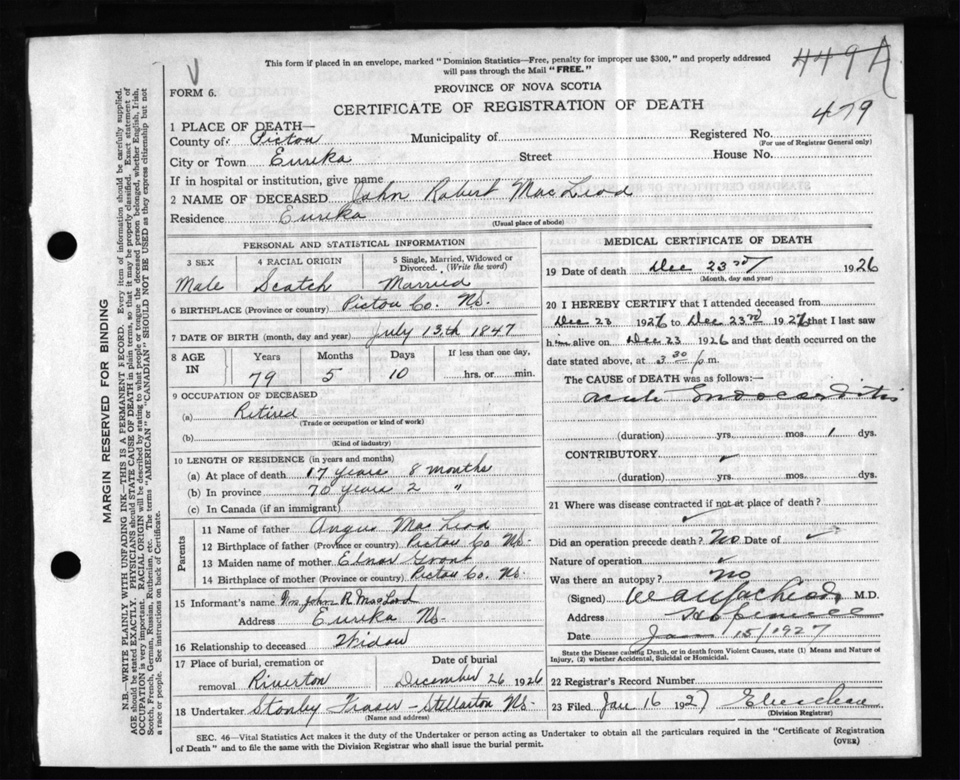 This form if placed in an envelope, marked "Dominion Statistics—Free, penalty for improper use $300," and properly addressed
will pass through the Mail "FREE."
449A
FORM 6.
PROVINCE OF NOVA SCOTIA
CERTIFICATE OF REGISTRATION OF DEATH
479
1 PLACE OF DEATH—
County of Pictou Municipality of Registered No.
(For use of Registrar General only)
City or Town Eureka Street House No.
If in hospital or institution, give name
2 NAME OF DECEASED John Robert MacLeod
Residence Eureka
(Usual place of abode)
PERSONAL AND STATISTICAL INFORMATION
3 SEX 4 RACIAL ORIGIN 5 Single, Married, Widowed or
Divorced. (Write the word)
Male Scotch Married
6 BIRTHPLACE (Province or country) Pictou Co. Ns.
7 DATE OF BIRTH (month, day and year) July 13th 1847
8 AGE IN Years Months Days If less than one day,
79 5 10 hrs. or min.
9 OCCUPATION OF DECEASED
(a) Retired
(Trade or occupation or kind of work)
(b)
(Kind of industry)
10 LENGTH OF RESIDENCE (in years and months)
(a) At place of death 17 years 8 months
(b) In province 70 years 2 "
(c) In Canada (if an immigrant)
Parents
11 Name of father Angus MacLeod
12 Birthplace of father (Province or country) Pictou Co Ns.
13 Maiden name of mother Grant
14 Birthplace of mother (Province or country) Pictou Co. Ns.
15 Informant's name Mrs John R. MacLeod
Address Eureka Ns.
16 Relationship to deceased Widow
17 Place of burial, cremation or Date of burial
removal Riverton December 26 1926
18 Undertaker Stanley Fraser - Stellarton Ns.
(Name and address)
MEDICAL CERTIFICATE OF DEATH
19 Date of death Dec 23rd 1926
(Month, day and year)
20 I HEREBY CERTIFY that I attended deceased from
Dec 23 1926 to Dec 23rd 1926 that I last saw
him alive on Dec 23 1926 and that death occurred on the
date stated above, at 3 30 p m.
The CAUSE OF DEATH was as follows:—
Acute Endocarditis
(duration) yrs. mos. 1 dys.
CONTRIBUTORY
(duration) yrs. mos. dys.
21 Where was disease contracted if not at place of death?
Did an operation precede death? No Date of
Nature of operation
Was there an autopsy? No
(Signed) M.D.
Address Hopewell
Date Jan 15/1927
State the Disease causing Death, or in death from Violent Causes, state (1) Means and Nature of
Injury, (2) whether Accidental, Suicidal or Homicidal.
22 Registrar's Record Number
23 Filed Jan 16 1927
(Division Registrar)
SEC. 46—Vital Statistics Act makes it the duty of the Undertaker or person acting as Undertaker to obtain all the particulars required in the "Certificate of Registration
of Death" and to file the same with the Division Registrar who shall issue the burial permit.
(OVER)
MARGIN RESERVED FOR BINDING
N.B.—WRITE PLAINLY WITH UNFADING INK—THIS IS A PERMANENT RECORD. Every item of information should be carefully supplied.
AGE should be stated EXACTLY. PHYSICIANS should STATE CAUSE OF DEATH in plain terms, so that it may be properly classified. Exact statement of
OCCUPATION is very important. RACIAL ORIGIN will be described by stating to what people or tongue the deceased person belonged, whether English, Irish,
Scotch, French, German, Russian, Ruthenian, etc. The terms "AMERICAN" or "CANADIAN" SHOULD NOT BE USED as they express citizenship but not
a race or people. See instructions on back of Certificate.